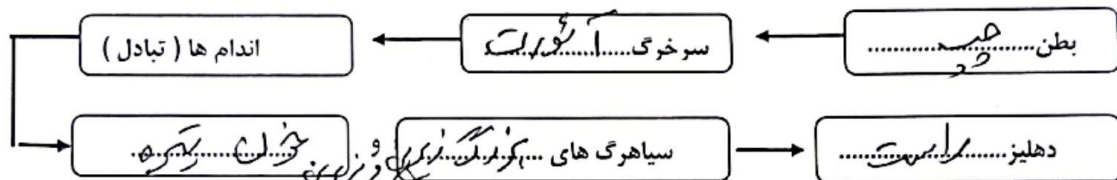 بطن چپ سرخرگ آئورت اندام ها ( تبادل )
خون تیره سیاهرگ های بزرگ زبرین و زیرین دهلیز راست